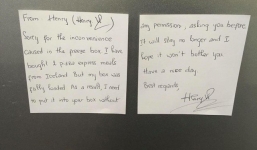 From Henry (Henry)
Sorry for the inconvenience
caused in the freeze box I have
bought 2 pizza express meals
from Iceland. But my box was
fully loaded. As a result, I need
to put it into your box without
any permission, asking you before.
It will stay no longer and I
hope it won't bother you
Have a nice day.
Best regards,
Henry